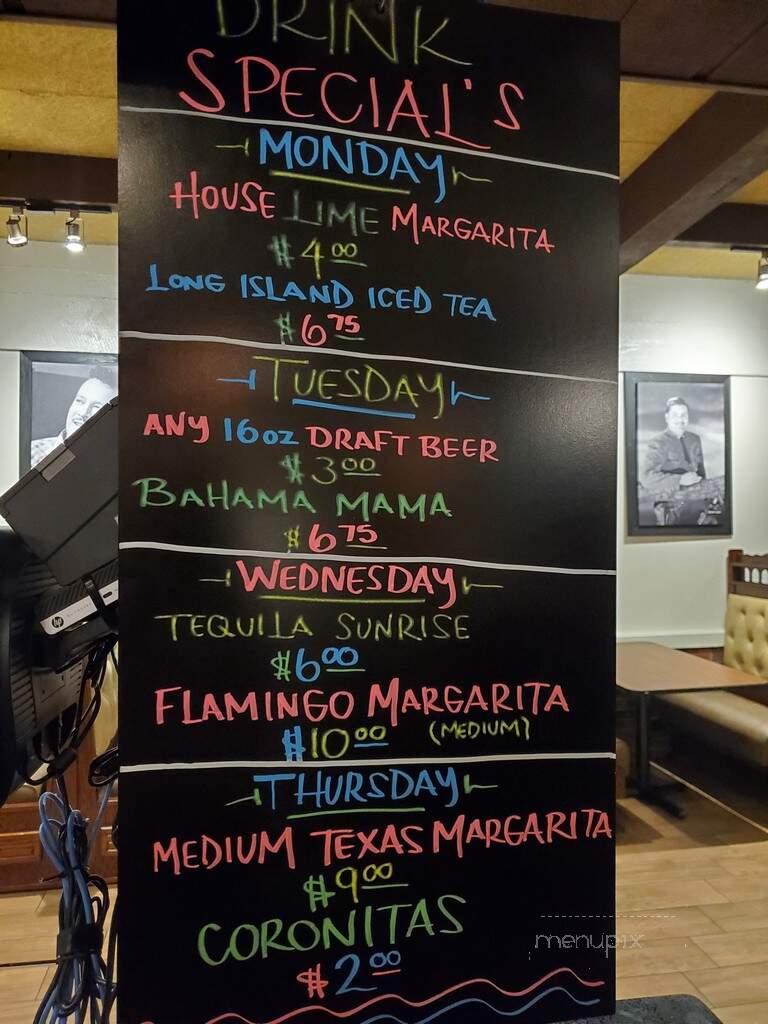 DRINK
SPECIAL'S
MONDAY
HOUSE LIME MARGARITA
$4.00
LONG ISLAND ICED TEA
$6.75
TUESDAY
ANY 16oz DRAFT BEER
$3.00
BAHAMA MAMA
$6.75
WEDNESDAY
TEQUILA SUNRISE
$6.00
FLAMINGO MARGARITA
$10.00 (MEDIUM)
THURSDAY
MEDIUM TEXAS MARGARITA
$9.00
CORONITAS
$2.00
hp
menupix